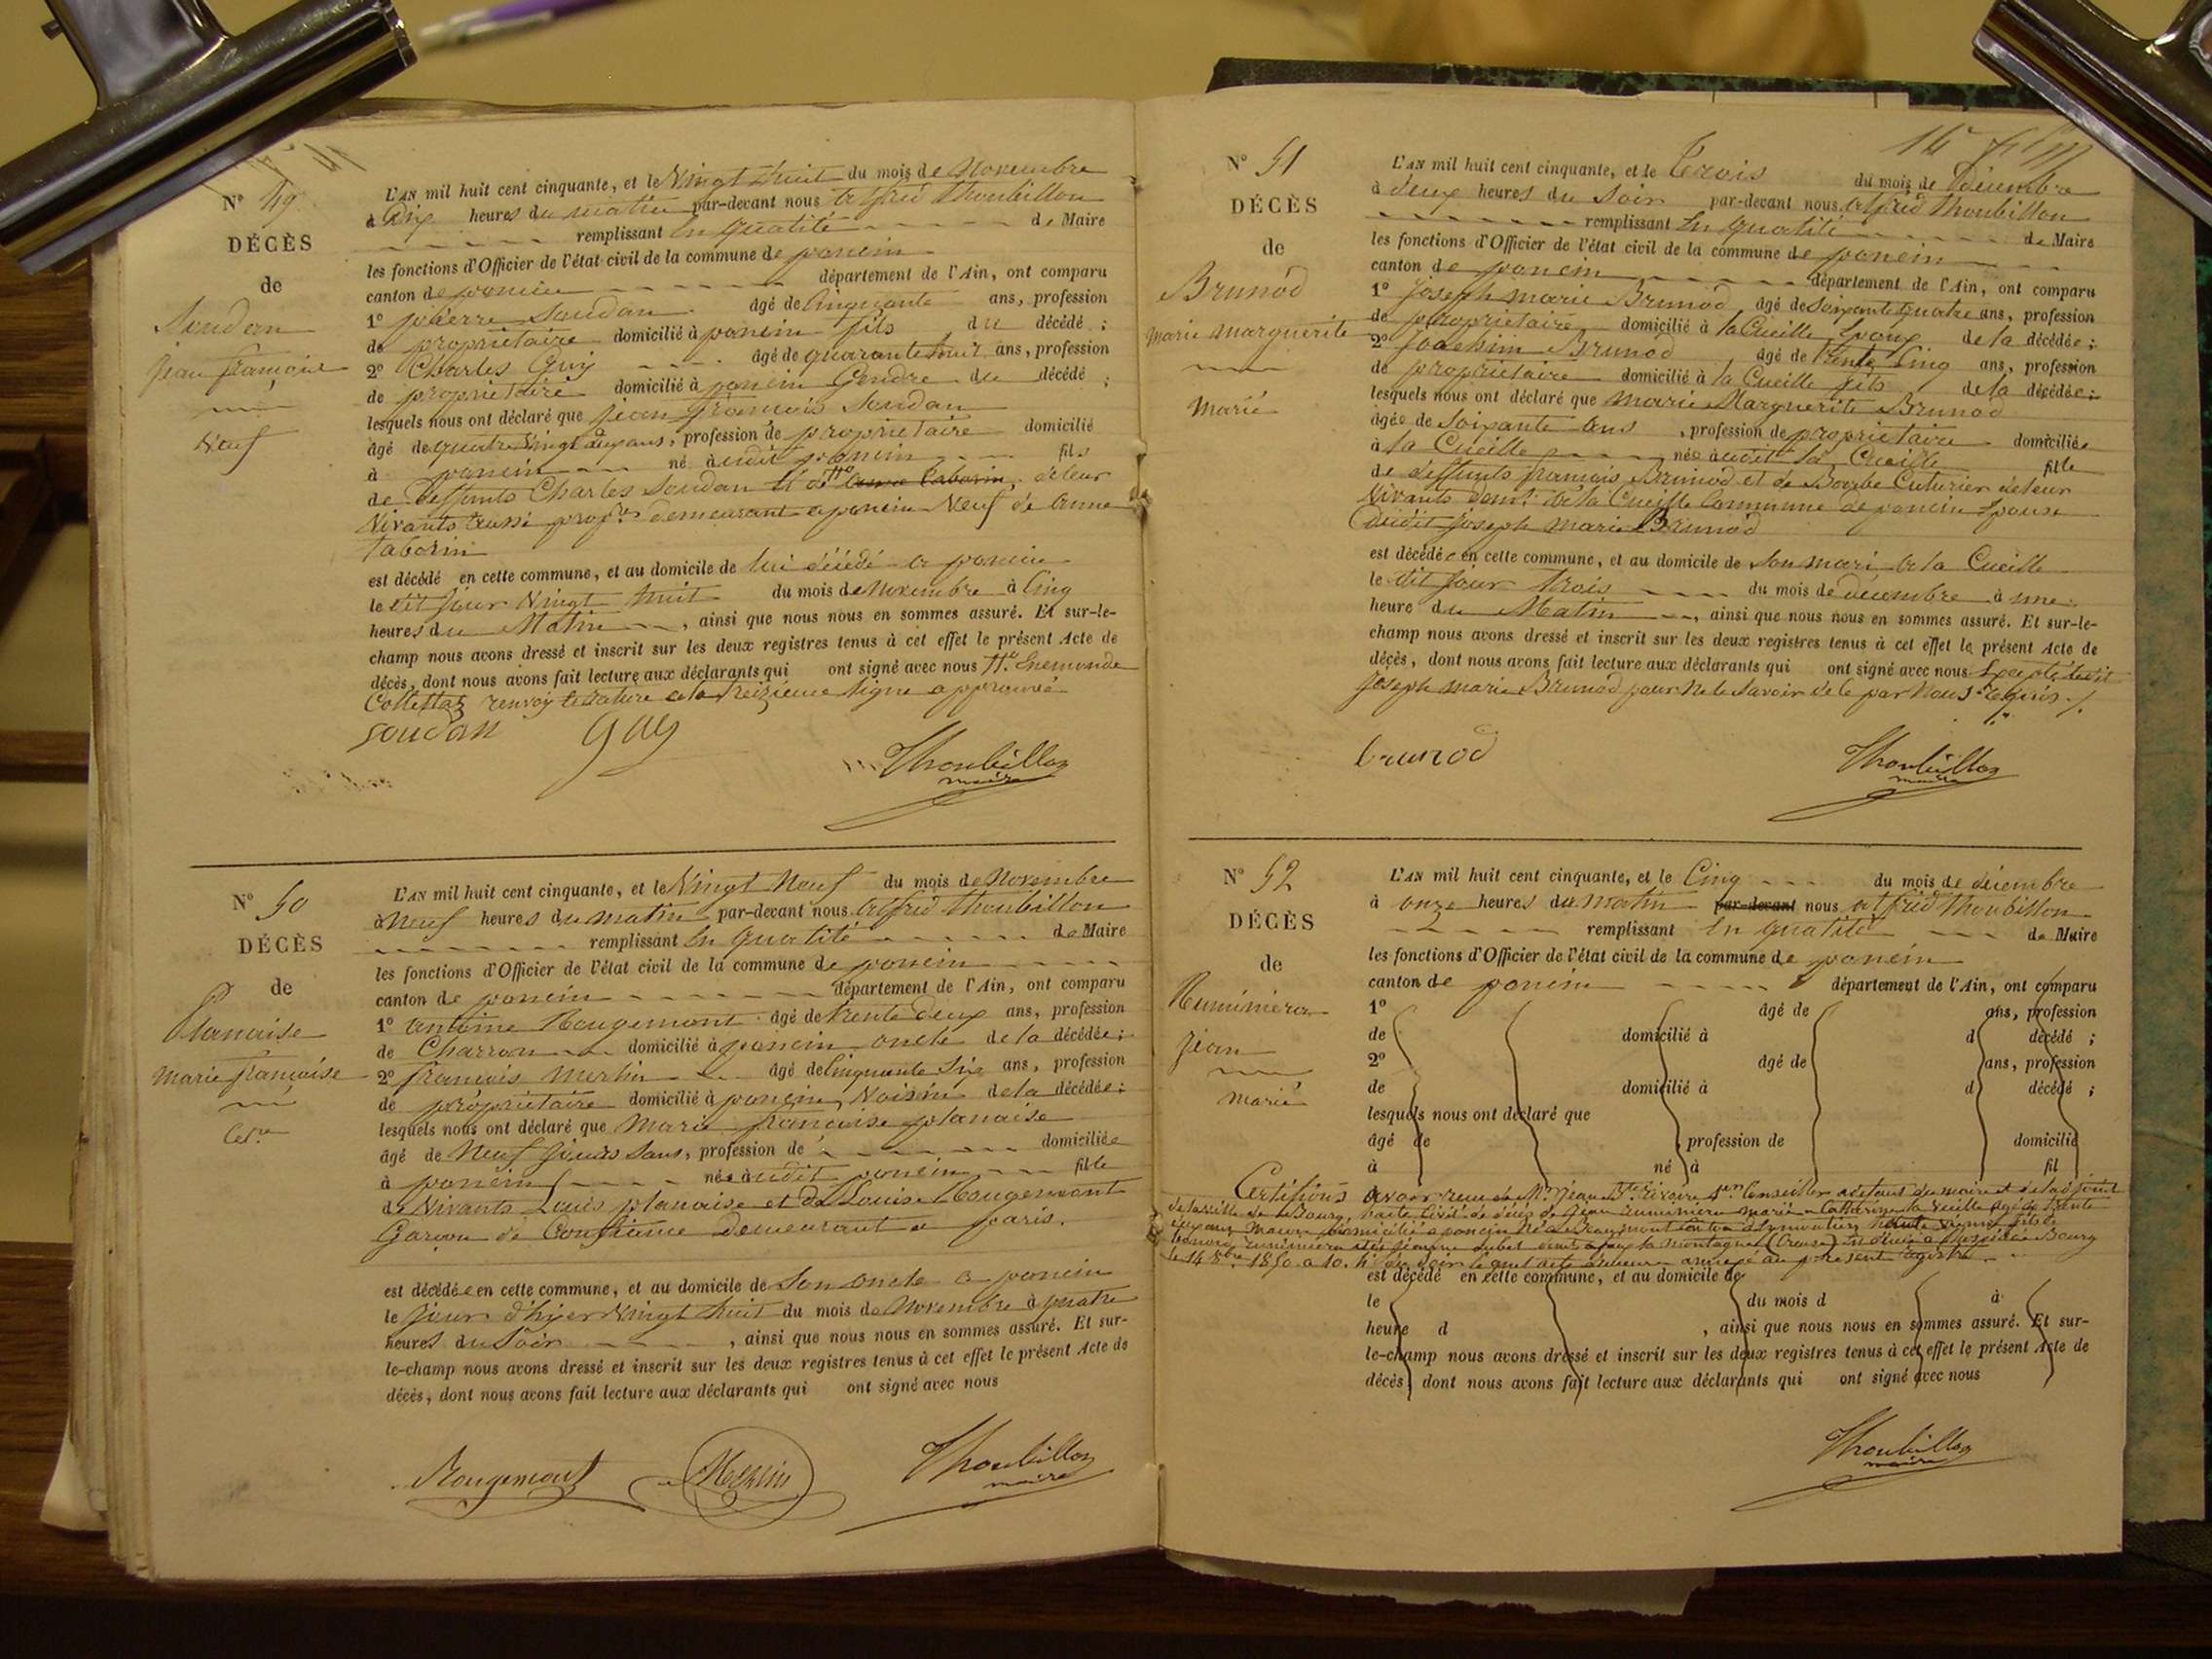 N° 49
DÉCÈS
de
Soudan
jean françois
Veuf
L'AN mil huit cent cinquante, et le Vingt huit du mois de Novembre
à Dix heures du matin par-devant nous alfred Thoubillon
remplissant en qualité de Maire
les fonctions d'Officier de l'état civil de la commune de poncin
canton de poncin département de l'Ain, ont comparu
1° pierre Soudan âgé de Cinquante ans, profession
de propriétaire domicilié à poncin fils du décédé ;
2° Charles Guy âgé de quarante huit ans, profession
de propriétaire domicilié à poncin Gendre du décédé ;
lesquels nous ont déclaré que jean françois Soudan
âgé de quatre Vingt ans, profession de propriétaire domicilié
à poncin né audit poncin fils
de deffunts Charles Soudan et de de leur
Vivants aussi prop.res demeurant a poncin Veuf de anne
Taborin
est décédé en cette commune, et au domicile de lui décédé a poncin
le dit jour Vingt huit du mois de Novembre à Cinq
heures du Matin, ainsi que nous nous en sommes assuré. Et sur-le-
champ nous avons dressé et inscrit sur les deux registres tenus à cet effet le présent Acte de
décès, dont nous avons fait lecture aux déclarants qui ont signé avec nous Enemonde
Collettaz renvoy et rature a la treizieme ligne approuvé
soudan guy
Thoubillon
maire
N° 50
DÉCÈS
de
Planaise
marie françoise
Cel.re
L'AN mil huit cent cinquante, et le Vingt Neuf du mois de Novembre
à Neuf heures du matin par-devant nous alfred Thoubillon
remplissant en qualité de Maire
les fonctions d'Officier de l'état civil de la commune de poncin
canton de poncin département de l'Ain, ont comparu
1° antoine Rougemont âgé de trente deux ans, profession
de Charron domicilié à poncin oncle de la décédée ;
2° françois Merlin âgé de Cinquante Six ans, profession
de propriétaire domicilié à poncin Voisin de la décédée ;
lesquels nous ont déclaré que Marie françoise planaise
âgé de Neuf jours Sans, profession de domiciliée
à poncin née audit poncin fille
de Vivants Louis planaise et de Louise Rougemont
Garçon de Confiance demeurant a paris.
est décédée en cette commune, et au domicile de Son oncle a poncin
le jour d'hyer Vingt huit du mois de Novembre à quatre
heures du Soir, ainsi que nous nous en sommes assuré. Et sur-
le-champ nous avons dressé et inscrit sur les deux registres tenus à cet effet le présent Acte de
décès, dont nous avons fait lecture aux déclarants qui ont signé avec nous
Rougemont Merlin Thoubillon
maire
N° 51
DÉCÈS
de
Brunod
marie marguerite
Marié
L'AN mil huit cent cinquante, et le Trois du mois de Décembre
à deux heures du Soir par-devant nous alfred Thoubillon
remplissant en qualité de Maire
les fonctions d'Officier de l'état civil de la commune de poncin
canton de poncin département de l'Ain, ont comparu
1° joseph marie Brunod âgé de Soixante quatre ans, profession
de propriétaire domicilié à la Cueille Epoux de la décédée ;
2° joachim Brunod âgé de trente Cinq ans, profession
de propriétaire domicilié à la Cueille fils de la décédée ;
lesquels nous ont déclaré que Marie Marguerite Brunod
âgée de Soixante ans, profession de propriétaire domiciliée
à la Cueille née audit la Cueille fille
de deffunts françois Brunod et de Couturier de leur
Vivants dem.t de la Cueille Commune de poncin Epouse
dudit joseph marie Brunod
est décédée en cette commune, et au domicile de Son mari de la Cueille
le dit jour trois du mois de décembre à une
heure du Matin, ainsi que nous nous en sommes assuré. Et sur-le-
champ nous avons dressé et inscrit sur les deux registres tenus à cet effet le présent Acte de
décès, dont nous avons fait lecture aux déclarants qui ont signé avec nous Excepté ledit
joseph marie Brunod pour Ne le Savoir de ce par Nous Requis
brunod
Thoubillon
maire
N° 52
DÉCÈS
de
jean
marié
L'AN mil huit cent cinquante, et le Cinq du mois de décembre
à onze heures du matin par-devant nous alfred Thoubillon
remplissant en qualité de Maire
les fonctions d'Officier de l'état civil de la commune de poncin
canton de poncin département de l'Ain, ont comparu
1° âgé de ans, profession
de domicilié à d décédé ;
2° âgé de ans, profession
de domicilié à d décédé ;
lesquels nous ont déclaré que
âgé de profession de domicilié
à né à fil
Certifions avoir reçu de Mr jean Conseiller du maire et de l'adjoint
de la Ville de Bourg, de décès de jean marié a Catherine la Veille agé de trente
maçon domicilié a poncin
la montagne (Creuse) décédé a Bourg
le 14 8bre 1850 a 10 h. du Soir annexé au présent registre
est décédé en cette commune, et au domicile de
le du mois d à
heure d, ainsi que nous nous en sommes assuré. Et sur-
le-champ nous avons dressé et inscrit sur les deux registres tenus à cet effet le présent Acte de
décès, dont nous avons fait lecture aux déclarants qui ont signé avec nous
Thoubillon
maire